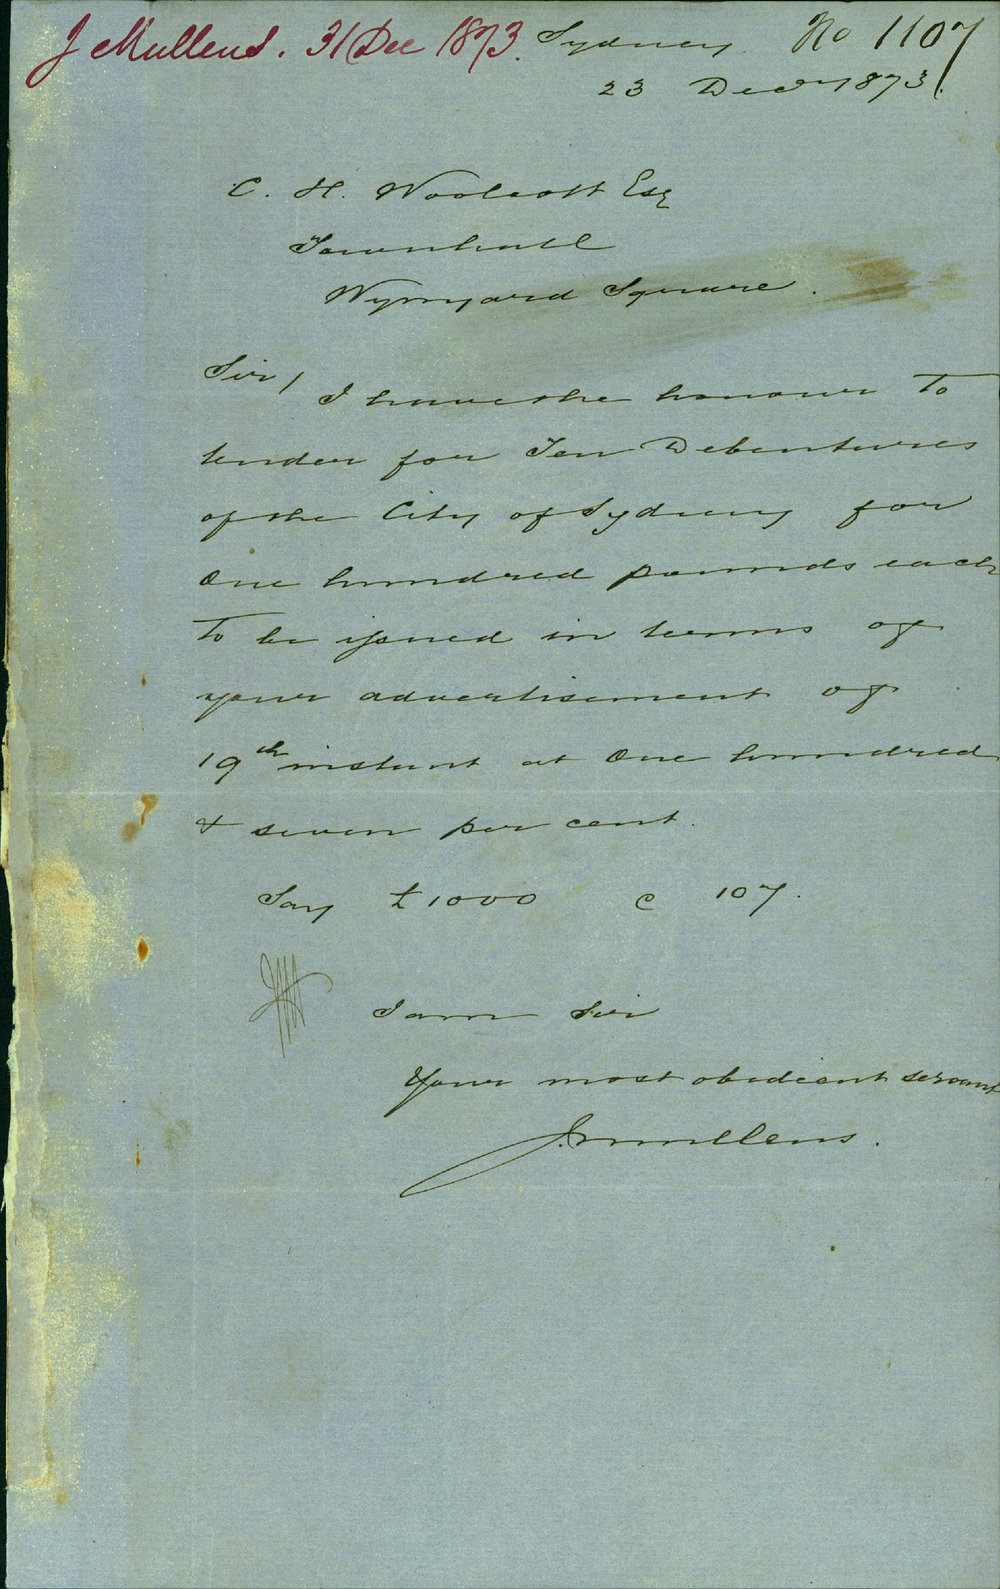 J Mullens. 31 Dec 1873. Sydney. No 1107
23 Decr 1873.
C. H. Woolcott Esq
Townhall
Wynyard Square.
Sir / I have the honour to
tender for Ten Debentures
of the City of Sydney for
One hundred pounds each
to be issued in terms of
your advertisement of
19th instant at One hundred
& seven per cent.
Say £1000 @ 107.
I am Sir
Your most obedient servant
J. Mullens.